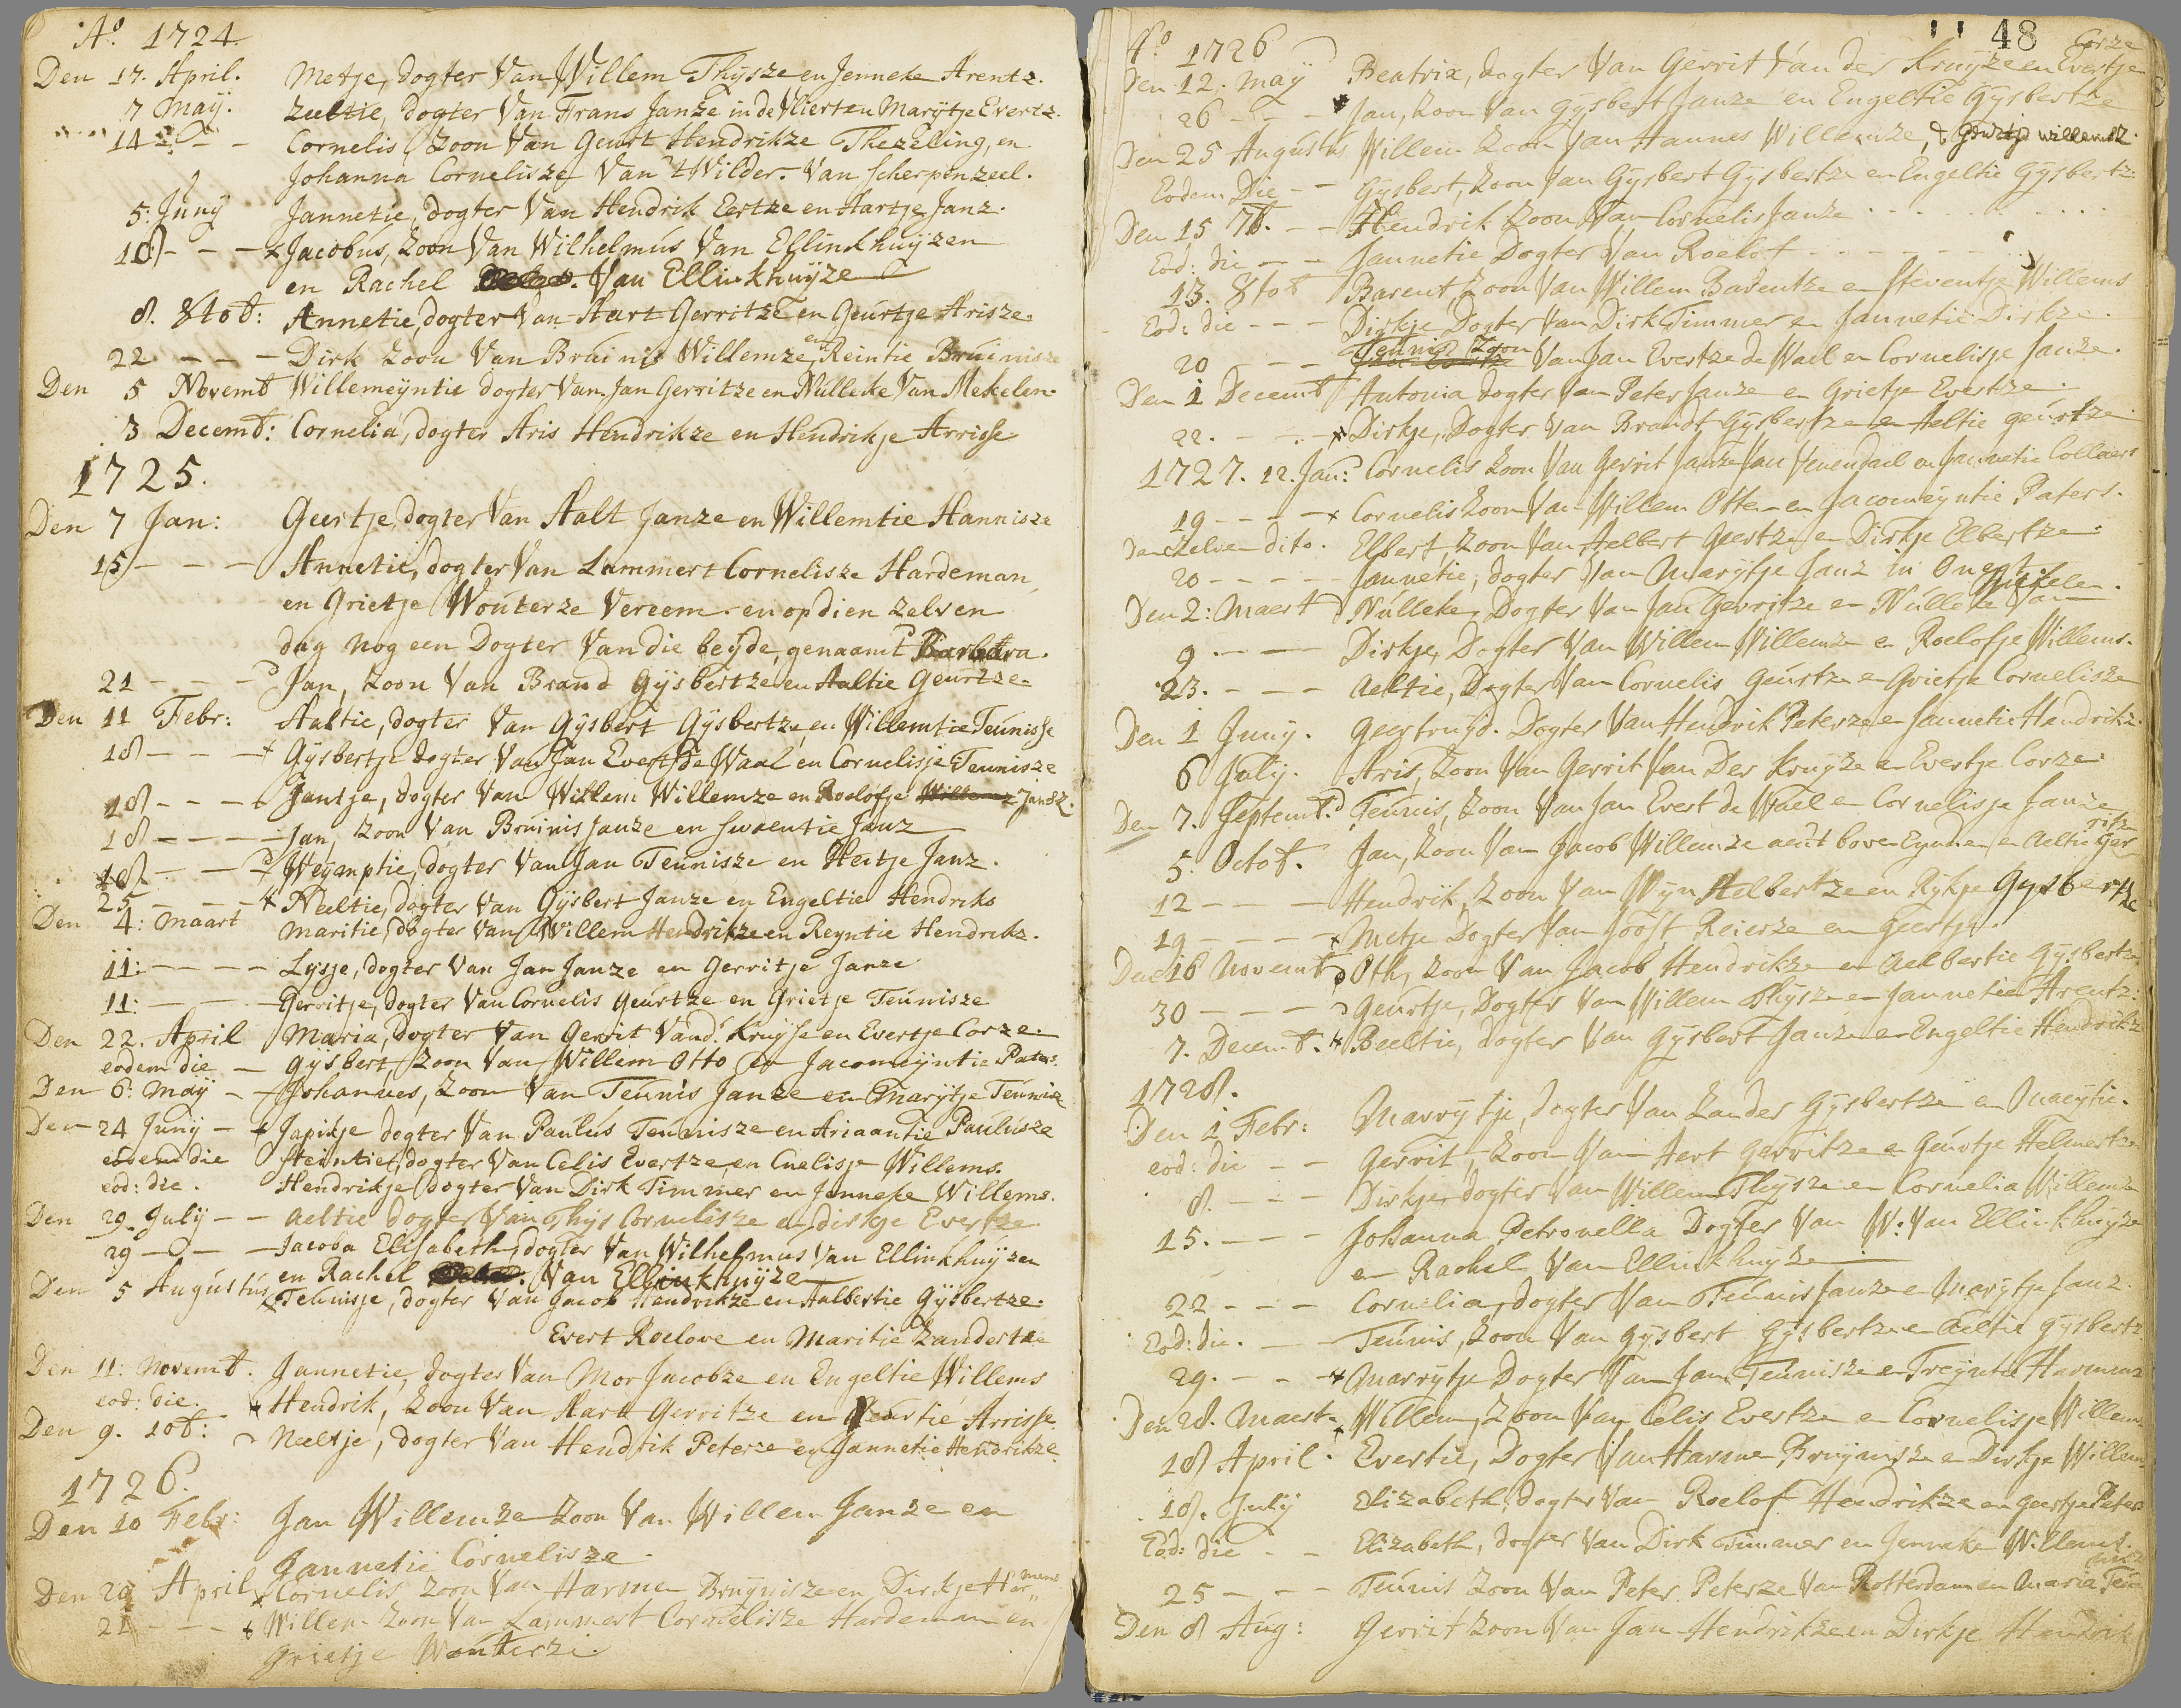 Aº. 1724.
Den 17. April. Metje, dogter Van Willem Thijsze en Jenneke Arentz.
7 Maij. Zeeltie, dogter Van Frans Janze in de Vliert en Marijtje Evertz.
14 - - Cornelis, Zoon Van Geurt Hendrikze Thezeling, en
Johanna Cornelisze Van 't Wilder. Van Scherpenzeel.
5. Junij Jannetie, dogter Van Hendrik Eertze en Aartje Janz.
18 - - - Jacobus, Zoon Van Wilhelmus Van Ellinkhuijzen
en Rachel Van Ellinkhuijze
8. 8tob: Annetie, dogter Van Aart Gerritze en Geurtje Arisze.
22 - - - Dirk Zoon Van Bruinis Willemze en Reintie Bruinisze
Den 5 Novemb Willemeijntie dogter Van Jan Gerritze en Nulleke Van Mekelen.
3 Decemb: Cornelia, dogter Aris Hendrikze en Hendrikje Arrisse
1725.
Den 7 Jan: Geertje, dogter Van Aalt Janze en Willemtie Hannisze
15 - - - Annetie, dogter Van Lammert Cornelisze Hardeman
en Grietje Wouterze Vereem. en op dien zelven
dag nog een Dogter Van die beijde, genaamt Barbara.
21 - - - Jan, Zoon Van Brand Gijsbertze en Aaltie Geurtze.
Den 11 Febr: Aaltie, dogter Van Gijsbert Gijsbertze, en Willemtie Teunisse
18 - - - Gijsbertje dogter Van Jan Evert de Waal en Cornelisje Teunisze
18 - - - Jantje, dogter Van Willem Willemze en Roelofje Willemz Jansz.
18 - - - Jan, Zoon Van Bruinis Janze en Swaentie Janz
18 - - - Weijmptie, dogter Van Jan Teunisze en Heitje Janz.
25 - - - Neeltie, dogter Van Gijsbert Janze en Engeltie Hendriks
Den 4: Maart Maritie, dogter Van Willem Hendrikze en Reyntie Hendrikz.
11: - - - Lysje, dogter Van Jan Janze en Gerritje Janze
11: - - - Gerritje, dogter Van Cornelis Geurtze en Grietje Teunisze
Den 22. April Maria, dogter Van Gerrit Vand. Kruijse en Evertje Corze.
eodem die - Gijsbert, Zoon Van Willem Otto en Jacomeijntie Paters.
Den 6. Maij - Johannes, Zoon Van Teunis Janze en Marijtje Teunisze
Den 24 Junij - - Japikje dogter Van Paulus Teunisze en Ariaantie Paulusze
eodem die Steintiet, dogter Van Celis Evertze en Cnelisje Willems.
eod: die. Hendrikje dogter Van Dirk Timmer en Jenneke Willems.
Den 29 Julij - - Aeltie dogter Van Thijs Cornelisze en dirkje Evertze
29 - - - Jacoba Elisabeth, dogter Van Wilhelmus Van Ellinkhuijzen
en Rachel Van Ellinkhuijze
Den 5 Augustus Teunisje, dogter Van Jacob Hendrikze en Aalbertie Gijsbertze.
Evert Roelove en Maritie Zandertze
Den 11: Novemb. Jannetie, dogter Van Mor Jacobze en Engeltie Willems
eod: die. Hendrik, Zoon Van Aart Gerritze en Geurtie Arrisse.
Den 9. 10b: Neeltje, dogter Van Hendrik Peterze en Jannetie Hendrikze
1726.
Den 10 Febr: Jan Willemze Zoon Van Willem Janze en
Jannetie Cornelisze.
Den 20 April Cornelis Zoon Van Harmen Bruijnisze en Dirkje Harmens
21 - - - Willem Zoon Van Lammert Cornelisze Hardeman en
Grietje Wouterze.
48
Aº 1726
Den 12. Maij Beatrix, dogter Van Gerrit Van der Kruijze en Evertje Corze
26 - - - Jan, Zoon Van Gijsbert Janze en Engeltie Gijsbertze
Den 25 Augustus Willem Zoon Van Hannes Willemze, & Geurtje willemsz.
Eodem Die - - Gijsbert, Zoon Van Gijsbert Gijsbertze en Engeltie Gijsbertz.
Den 15 7b. - - Hendrik Zoon Van Cornelis Janze
Eod: die - - Jannetie Dogter Van Roelof
13. 8tob Barent, Zoon Van Willem Barentze en Steventje Willems
Eod: die - - - Dirkje Dogter Van Dirk Timmer en Jannetie Dirkze.
20 - - - Teunis Zoon Van Jan Evertze de Wael en Cornelisje Janze.
Den 1 Decemb Antonia dogter Van Peter Janze en Grietje Evertze.
22. - - - Dirkje, Dogter Van Brandt Gijsbertze en Aeltie geurtze
1727. 12. Jan: Cornelis Zoon Van Gerrit Janze Van Venendael en Jannetie Collaers
19 - - - Cornelis Zoon Van Willem Otten en Jacomeijntie Paters.
Den zelven dito. Elbert, Zoon Van Aelbert Geertze en Dirkje Elbertze.
20 - - - Jannetie, dogter Van Marijtje Janz in Onegt.
Den 2: Maert Nulleke, Dogter Van Jan Gerritze en Nulleke Van Mekelen.
9 - - - Dirkje, Dogter Van Willem Willemze en Roelofje Willems.
23. - - - Aeltie, Dogter Van Cornelis Geurtze en Grietje Cornelisze
Den 1 Junij. Geertruijd. Dogter Van Hendrik Peterze en Jannetie Handrikz.
6 Julij. Aris, Zoon Van Gerrit Van Der Kruijze en Evertje Corze.
Den 7. Septemb. Teunis, Zoon Van Jan Evert de Wael en Cornelisje Janze
5. Octob. Jan, Zoon Van Jacob Willemze aent boven Eynden en Aeltie Gerritze
12 - - - Hendrik, Zoon Van Wijn Aelbertze en Rykje Gysbertze
19 - - - Metje Dogter Van Joost Reierze en Geertje.
Den 16 Novemb Oth, Zoon Van Jacob Hendrikze en Aelbertie Gijsbertze
30 - - - Geurtje, Dogter Van Willem Thijsze en Jannetie Arentz:
7. Decemb. Beeltie, dogter Van Gijsbert Janze en Engeltie Hendrikz
1728.
Den 1 Febr: Marrijtje, dogter Van Zander Gijsbertze en Maeijtie.
eod: die - - Gerrit, Zoon Van Aert Gerritze en Geurtje Helmertze
8. - - - Dirkje, dogter Van Willem Thijsze en Cornelia Willemze
15. - - - Johanna Petronella Dogter Van W: Van Ellinkhuijze
en Rachel Van Ellinkhuijze
22 - - - Cornelia, dogter Van Teunis Janze en Marijtje Janz.
Eod: die. - - Teunis, Zoon Van Gijsbert Gijsbertze en Aeltie Gijsbertz
29. - - - Marrijtje Dogter Van Jan Teunisze en Treijntie Harmens
Den 28. Maert Willem, Zoon Van Celis Evertze en Cornelisje Willems
18 April. Evertie, Dogter Van Harme Bruijnisze en Dirkje Willems
18. July Elizabeth, dogter Van Roelof Hendrikze en Geertje Peters
Eod: die - - Elizabeth, dogter Van Dirk Timmer en Jenneke Willems.
25 - - - Teunis Zoon Van Peter Peterze Van Rotterdam en Maria Teunisz
Den 8 Aug: Gerrit Zoon Van Jan Hendrikze en Dirkje Hendrik